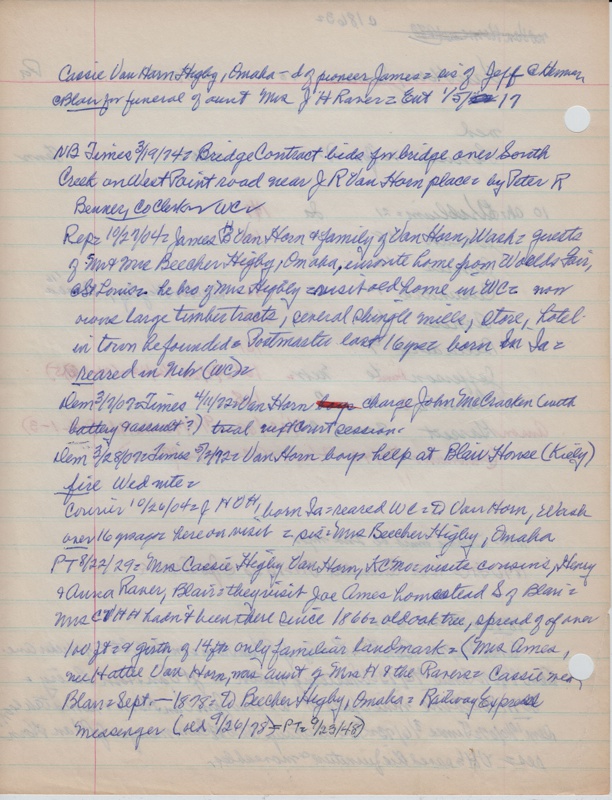 Cassie Van Horn Higby, Omaha - d of pioneer James = sis of Jeff & Herman
@ Blair for funeral of aunt Mrs J H Raver = Ent 1/5/17
NB Times 3/19/74 = Bridge Contract bids for bridge over South
Creek on West Point road near J R Van Horn place = by Peter R
Benner, Co Clerk WC
Rep = 10/27/04 = James B Van Horn & family of Van Horn, Wash = guests
of Mr & Mrs Beecher Higby, Omaha, enroute home from Worlds Fair,
@ St Louis = he bro of Mrs Higby = visit old home in WC = now
owns large timber tracts, several shingle mills, store, hotel
in town he founded = Postmaster last 16 yrs = born in Ia =
reared in Neb (WC) =
Dem 3/7/07 = Times 4/11/72 = Van Horn charge John McCracken (with
battery & assault?) trial next Court session.
Dem 3/28/07 = Times 5/2/72 = Van Horn boys help at Blair House (Kiely)
fire Wed nite =
Courier 10/26/04 = J born Ia = reared WC = @ Van Horn, Wash
over 16 yrs ago = here on visit = sis = Mrs Beecher Higby, Omaha
PT 8/22/29 = Mrs Cassie Higby Van Horn, KC Mo = visits cousins, Henry
& Anna Raver, Blair = they visit Joe Ames homestead S of Blair =
Mrs hadn't been there since 1866 = old oak tree, spread of over
100 ft = & girth of 14 ft only familiar landmark = (Mrs Ames,
nee Hattie Van Horn, was aunt of Mrs H & the Ravers = Cassie
Blair = Sept - 1878 = to Beecher Higby, Omaha = Railway Express
messenger (wed 9/26/78) = PT = 9/23/48)